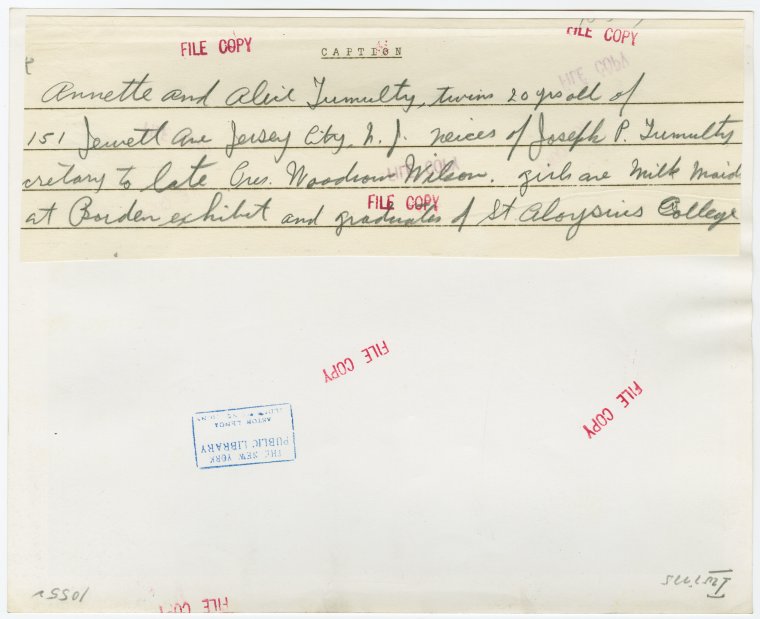 FILE COPY
FILE COPY
CAPTION
FILE COPY
Annette and Alice Tumulty, twins 20 yrs old of
151 Jewett Ave Jersey City, N.J. neices of Joseph P. Tumulty
cretary to late Pres. Woodrow Wilson. girls are Milk Maid
FILE COPY
at Borden exhibit and graduates of St Aloysius College
FILE COPY
FILE COPY
FILE COPY
THE NEW YORK
PUBLIC LIBRARY
ASTOR LENOX
FILE COPY